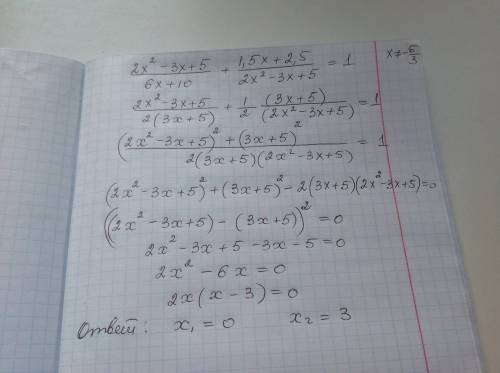 (2x² - 3x + 5)/(6x + 10) + (1,5x + 2,5)/(2x² - 3x + 5) = 1   x ≠ -5/3
(2x² - 3x + 5)/(2(3x + 5)) + 1/2 (3x + 5)/(2x² - 3x + 5) = 1
((2x² - 3x + 5)² + (3x + 5)²)/(2(3x + 5)(2x² - 3x + 5)) = 1
(2x² - 3x + 5)² + (3x + 5)² - 2(3x + 5)(2x² - 3x + 5) = 0
((2x² - 3x + 5) - (3x + 5))² = 0
2x² - 3x + 5 - 3x - 5 = 0
2x² - 6x = 0
2x(x - 3) = 0
Ответ: x₁ = 0   x₂ = 3